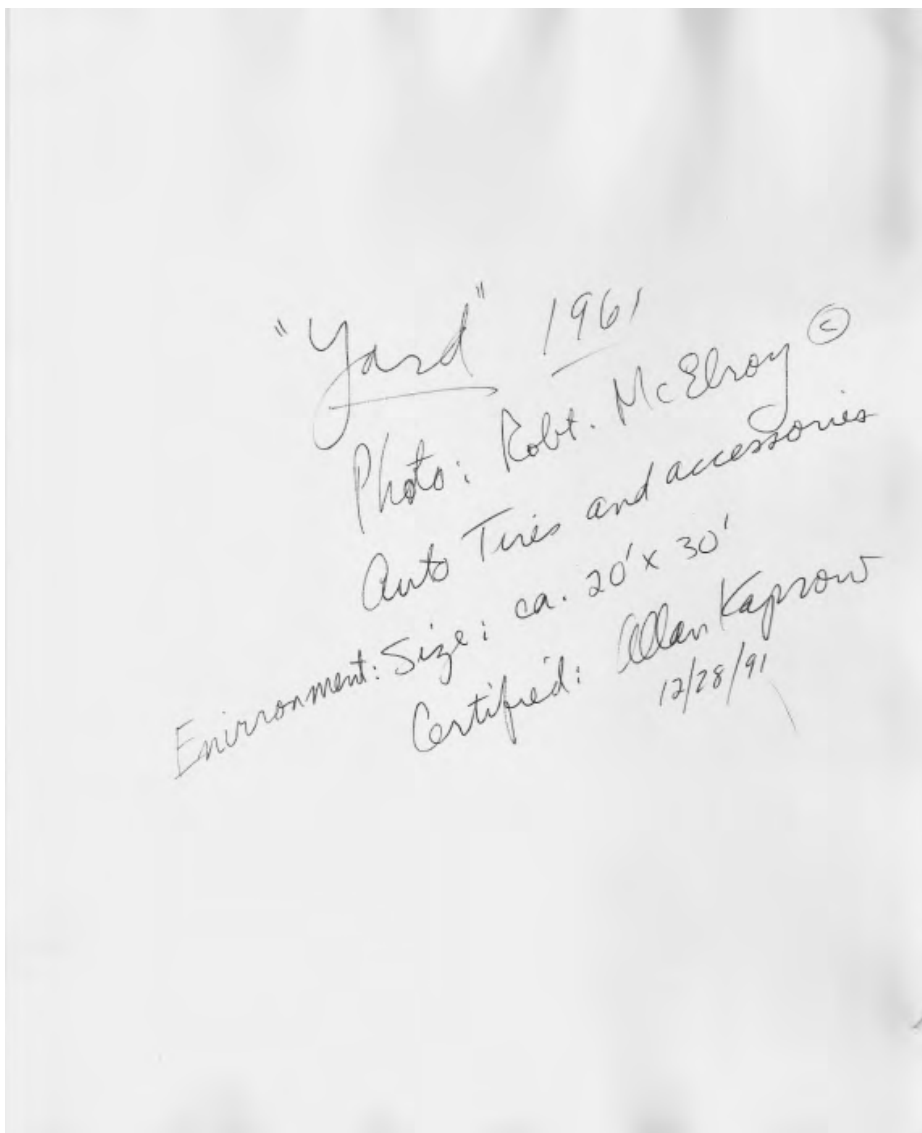 "Yard" 1961
Photo: Robt. McElroy ©
Auto Tires and accessories
Environment: Size: ca. 20' x 30'
Certified: Allan Kaprow
12/28/91